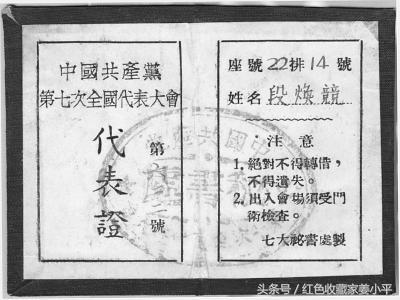 中國共產黨
第七次全國代表大會
代表證
第六〇二號
座號22排14號
姓名 段煥競
注意
1. 絕對不得轉借，
不得遺失。
2. 出入會場須受門
衛檢查。
七大祕書處製
头条号 / 红色收藏家姜小平